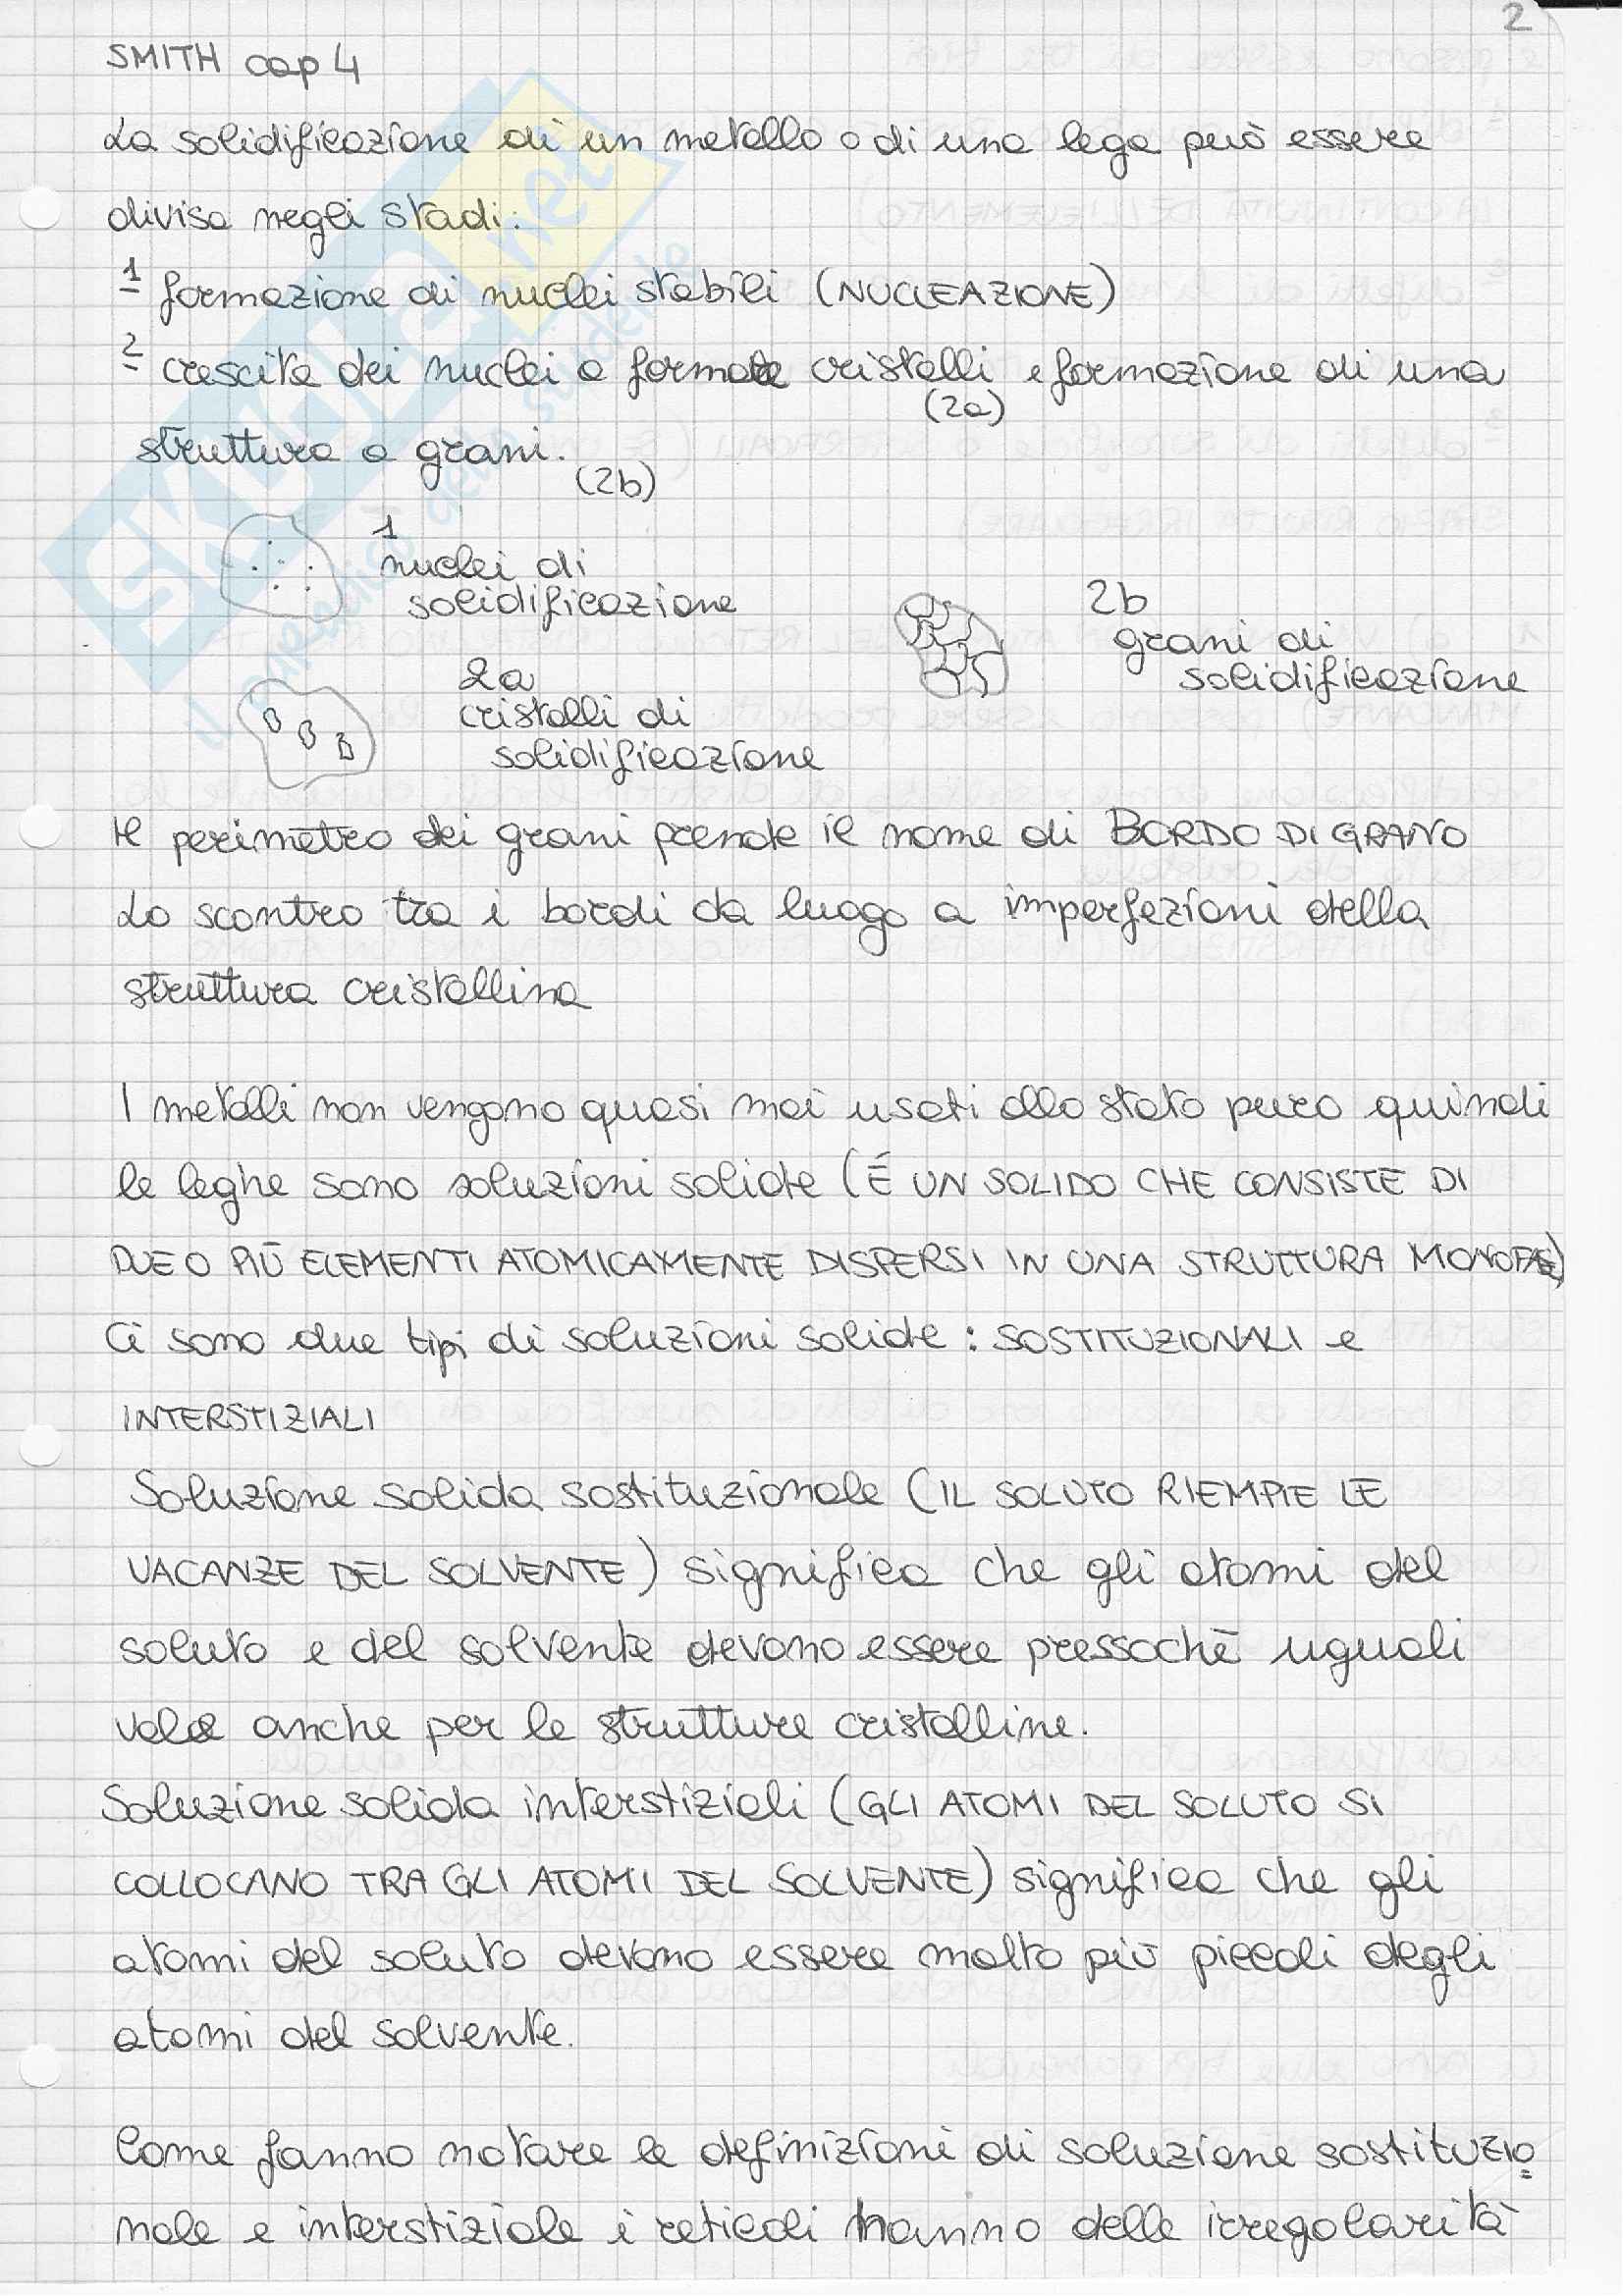 2
SMITH cap 4
La solidificazione di un metallo o di una lega può essere
divisa negli stadi:
1 formazione di nuclei stabili (NUCLEAZIONE)
2 crescita dei nuclei a formare cristalli e formazione di una
(2a)
struttura a grani.
(2b)
1
nuclei di
solidificazione
2b
grani di
solidificazione
2a
cristalli di
solidificazione
Il perimetro dei grani prende il nome di BORDO DI GRANO
Lo scontro tra i bordi da luogo a imperfezioni della
struttura cristallina
I metalli non vengono quasi mai usati allo stato puro quindi
le leghe sono soluzioni solide (É UN SOLIDO CHE CONSISTE DI
DUE O PIÙ ELEMENTI ATOMICAMENTE DISPERSI IN UNA STRUTTURA MONOFASE)
Ci sono due tipi di soluzioni solide: SOSTITUZIONALI e
INTERSTIZIALI
Soluzione solida sostituzionale (IL SOLUTO RIEMPIE LE
VACANZE DEL SOLVENTE) significa che gli atomi del
soluto e del solvente devono essere pressochè uguali
vale anche per le strutture cristalline.
Soluzione solida interstiziali (GLI ATOMI DEL SOLUTO SI
COLLOCANO TRA GLI ATOMI DEL SOLVENTE) significa che gli
atomi del soluto devono essere molto più piccoli degli
atomi del solvente.
Come fanno notare le definizioni di soluzione sostituzio=
nale e interstiziale i reticoli hanno delle irregolarità
SKUOLA.net
il paradiso dello studente